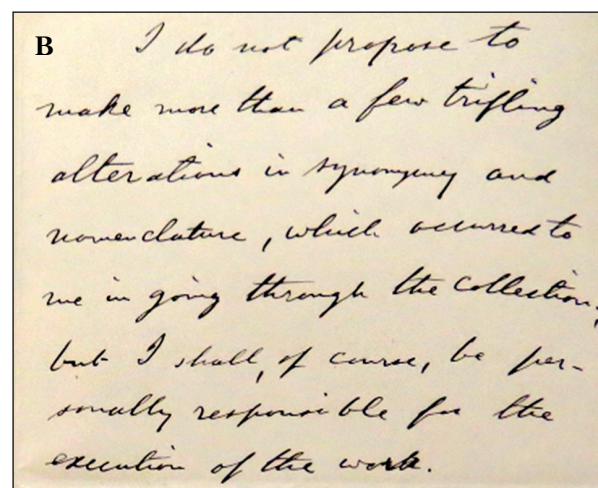 B I do not propose to
make more than a few trifling
alterations in synonymy and
nomenclature, which occurred to
me in going through the collection,
but I shall, of course, be per-
sonally responsible for the
execution of the work.